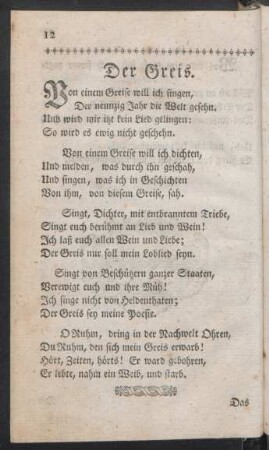 12
Der Greis.
Von einem Greise will ich singen,
Der neunzig Jahr die Welt gesehn.
Und wird mir itzt kein Lied gelingen:
So wird es ewig nicht geschehn.
Von einem Greise will ich dichten,
Und melden, was durch ihn geschah,
Und singen, was ich in Geschichten
Von ihm, von diesem Greise, sah.
Singt, Dichter, mit entbranntem Triebe,
Singt euch berühmt an Lieb und Wein!
Ich laß euch allen Wein und Liebe;
Der Greis nur soll mein Loblied seyn.
Singt von Beschützern ganzer Staaten,
Verewigt euch und ihre Müh!
Ich singe nicht von Heldenthaten;
Der Greis sey meine Poesie.
O Ruhm, dring in der Nachwelt Ohren,
Du Ruhm, den sich mein Greis erwarb!
Hört, Zeiten, hörts! Er ward gebohren,
Er lebte, nahm ein Weib, und starb.
Das